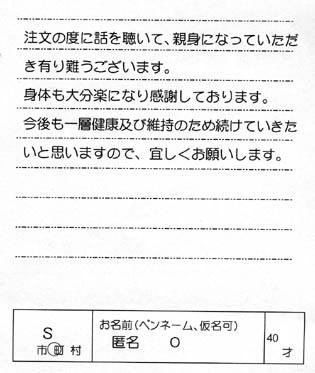 注文の度に話を聴いて、親身になっていただ
き有り難うございます。
身体も大分楽になり感謝しております。
今後も一層健康及び維持のため続けていきた
いと思いますので、宜しくお願いします。
S
市町村
お名前(ペンネーム、仮名可)
匿名 O
40
才